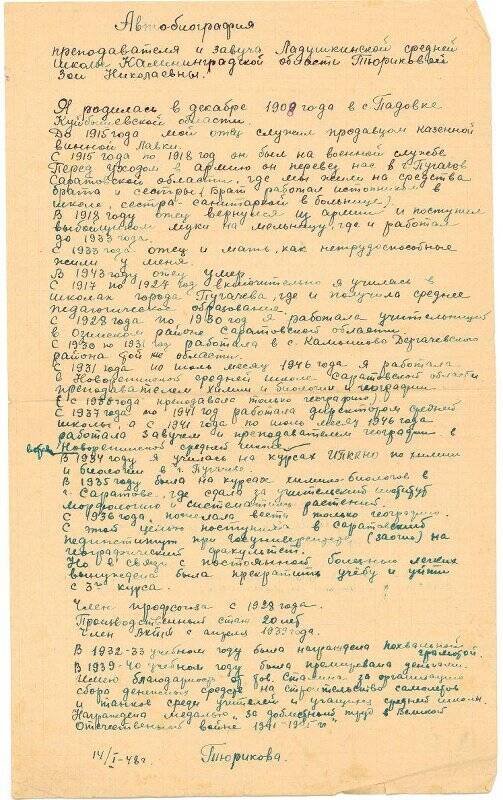 Автобиография
преподавателя и завуча Ладушкинской средней
школы Калининградской области Тюриковой
Зои Николаевны.
Я родилась в декабре 1908 года в с. Падовке
Куйбышевской области.
До 1915 года мой отец служил продавцом казенной
винной лавки.
С 1915 года по 1918 год он был на военной службе
Перед уходом в армию он перевез нас в г. Пугачев
Саратовской области, где мы жили на средства
брата и сестры (брат работал истопником в
школе, сестра-санитаркой в больнице).
В 1918 году отец вернулся из армии и поступил
выбойщиком муки на мельницу, где и работал
до 1933 года.
С 1933 года отец и мать, как нетрудоспособные
жили у меня.
В 1943 году отец умер.
С 1917 по 1927 год включительно я училась в
школах города Пугачева, где и получила среднее
педагогическое образование.
С 1928 года по 1930 год я работала учительницей
в районе Саратовской области.
С 1930 по 1931 год работала в с. Камышово Дергачевского
района той же области.
С 1931 года по июль месяц 1946 года я работала
в Новорепинской средней школе Саратовской области
преподавателем химии и биологии и географии.
(с 1938 года преподавала только географию).
С 1937 года по 1941 год работала директором средней
школы, а с 1941 года по июль месяц 1946 года
работала завучем и преподавателем географии в
Новорепинской средней школе.
В 1934 году я училась на курсах ИПКНО по химии
и биологии в г. Пугачеве.
В 1935 году была на курсах химико-биологов в
г. Саратове, где сдала за учительский институт
морфологию и систематику растений.
С 1936 года пожелала вести только географию.
С этой целью поступила в Саратовский
пединститут при госуниверситете (заочно) на
географический факультет.
Но в связи с постоянной болезнью легких
вынуждена была прекратить учёбу и уйти
с 3го курса.
Член профсоюза с 1928 года.
Производственный стаж 20 лет
Член ВКП(б) с апреля 1939 года.
В 1932-33 учебном году была награждена похвальной грамотой.
В 1939-40 учебном году была премирована деньгами.
Имею благодарность от тов. Сталина за организацию
сбора денежных средств на строительство самолетов
и танков среди учителей и учащихся средней школы.
Награждена медалью „За доблестный труд в Великой
Отечественной войне 1941-1945 г"
14/I-48г. Тюрикова.